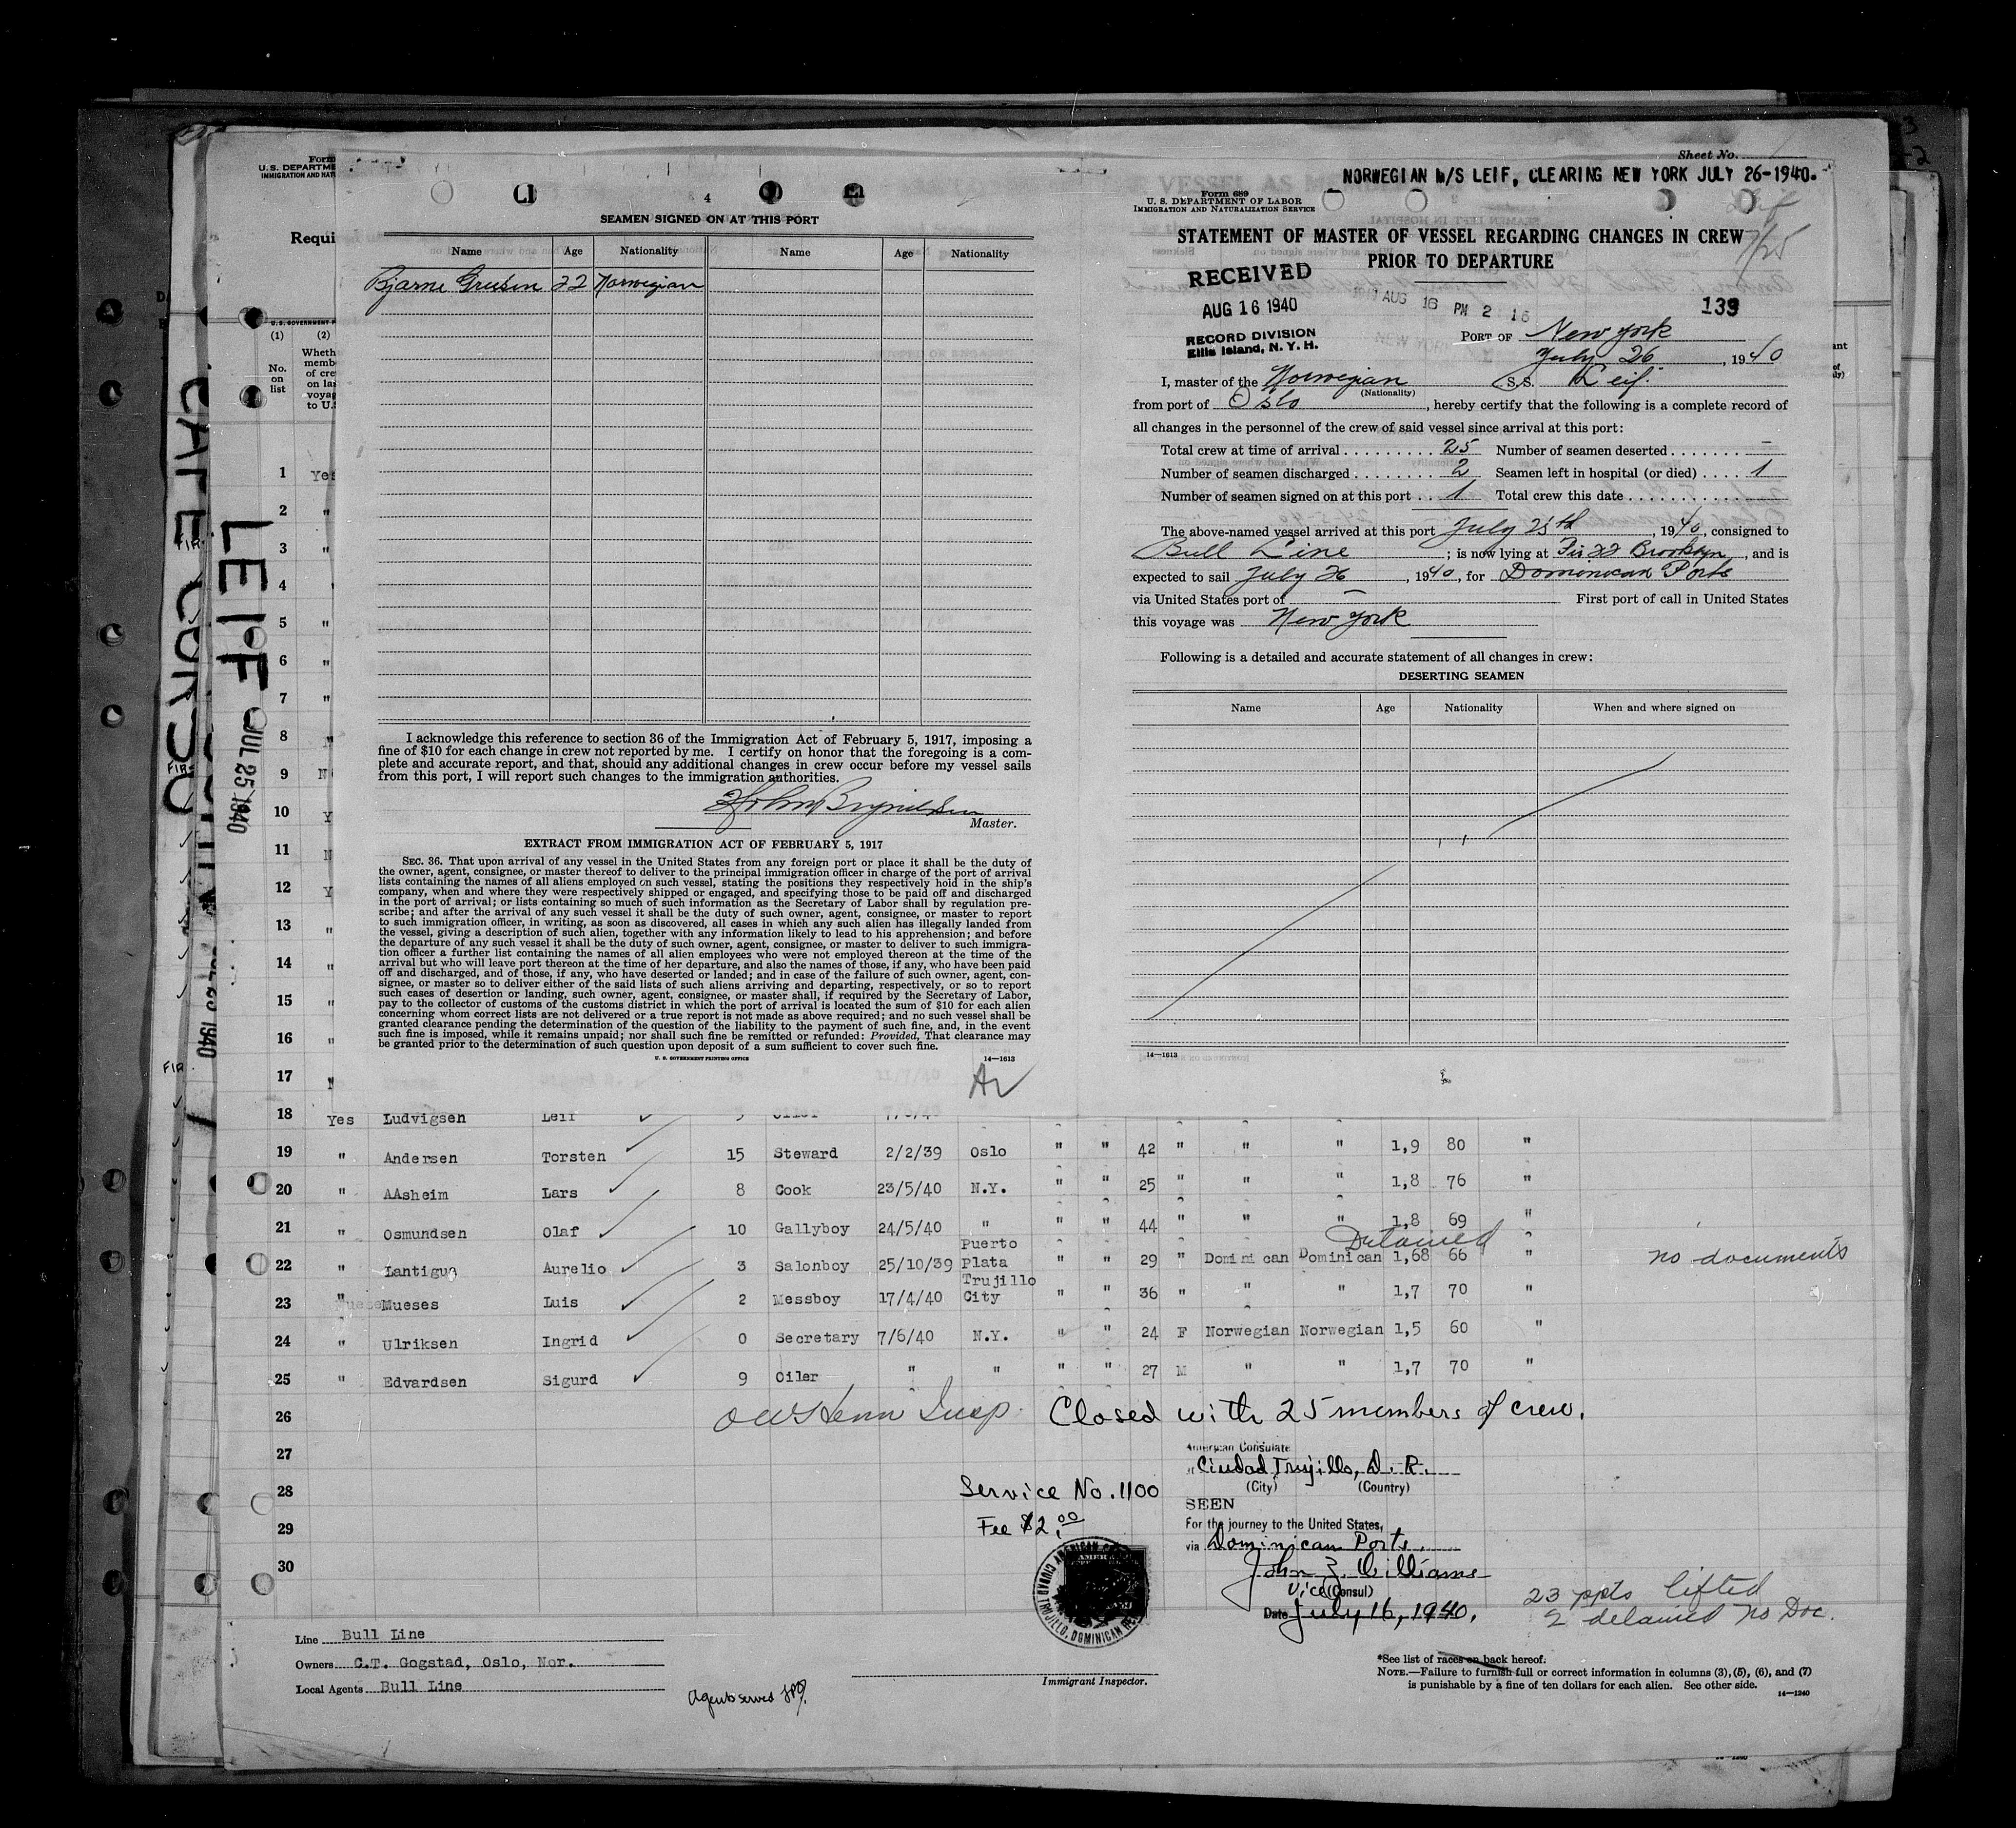 Sheet No.
NORWEGIAN M/S LEIF, CLEARING NEW YORK JULY 26-1940.
Form
U. S. DEPARTME
IMMIGRATION AND NAT
Requi
4
SEAMEN SIGNED ON AT THIS PORT
Name Age Nationality Name Age Nationality
Bjarne 22 Norwegian
I acknowledge this reference to section 36 of the Immigration Act of February 5, 1917, imposing a
fine of $10 for each change in crew not reported by me. I certify on honor that the foregoing is a com-
plete and accurate report, and that, should any additional changes in crew occur before my vessel sails
from this port, I will report such changes to the immigration authorities.
Master.
EXTRACT FROM IMMIGRATION ACT OF FEBRUARY 5, 1917
SEC. 36. That upon arrival of any vessel in the United States from any foreign port or place it shall be the duty of
the owner, agent, consignee, or master thereof to deliver to the principal immigration officer in charge of the port of arrival
lists containing the names of all aliens employed on such vessel, stating the positions they respectively hold in the ship's
company, when and where they were respectively shipped or engaged, and specifying those to be paid off and discharged
in the port of arrival; or lists containing so much of such information as the Secretary of Labor shall by regulation pre-
scribe; and after the arrival of any such vessel it shall be the duty of such owner, agent, consignee, or master to report
to such immigration officer, in writing, as soon as discovered, all cases in which any such alien has illegally landed from
the vessel, giving a description of such alien, together with any information likely to lead to his apprehension; and before
the departure of any such vessel it shall be the duty of such owner, agent, consignee, or master to deliver to such immigra-
tion officer a further list containing the names of all alien employees who were not employed thereon at the time of the
arrival but who will leave port thereon at the time of her departure, and also the names of those, if any, who have been paid
off and discharged, and of those, if any, who have deserted or landed; and in case of the failure of such owner, agent, con-
signee, or master so to deliver either of the said lists of such aliens arriving and departing, respectively, or so to report
such cases of desertion or landing, such owner, agent, consignee, or master shall, if required by the Secretary of Labor,
pay to the collector of customs of the customs district in which the port of arrival is located the sum of $10 for each alien
concerning whom correct lists are not delivered or a true report is not made as above required; and no such vessel shall be
granted clearance pending the determination of the question of the liability to the payment of such fine, and, in the event
such fine is imposed, while it remains unpaid; nor shall such fine be remitted or refunded: Provided, That clearance may
be granted prior to the determination of such question upon deposit of a sum sufficient to cover such fine.
U. S. GOVERNMENT PRINTING OFFICE 14—1613
Form 689
U. S. DEPARTMENT OF LABOR
IMMIGRATION AND NATURALIZATION SERVICE
STATEMENT OF MASTER OF VESSEL REGARDING CHANGES IN CREW
PRIOR TO DEPARTURE
7/25
RECEIVED
AUG 16 1940
RECORD DIVISION
Ellis Island, N. Y. H.
AUG 16 PM 2 16
139
PORT OF New York
July 26, 1940
I, master of the Norwegian S.S. Leif
(Nationality)
from port of Oslo, hereby certify that the following is a complete record of
all changes in the personnel of the crew of said vessel since arrival at this port:
Total crew at time of arrival 25 Number of seamen deserted –
Number of seamen discharged 2 Seamen left in hospital (or died) 1
Number of seamen signed on at this port 1 Total crew this date
The above-named vessel arrived at this port July 25th, 1940, consigned to
Bull Line; is now lying at Pir 22 Brooklyn, and is
expected to sail July 26, 1940, for Dominican Ports
via United States port of – First port of call in United States
this voyage was New York
Following is a detailed and accurate statement of all changes in crew:
DESERTING SEAMEN
Name Age Nationality When and where signed on
14—1613
LEIF JUL 25 1940
(1) (2)
No. on list
Wheth
memb
of cre
on las
voyag
to U.S
1 Yes
2 "
3 "
4 "
5 "
6 "
7 "
8 "
9 N
10 Y
11 N
12 Y
13 "
14 "
15 "
16 "
17
18 Yes Ludvigsen Leif
19 " Andersen Torsten 15 Steward 2/2/39 Oslo " " 42 " " " 1,9 80 "
20 " AAsheim Lars 8 Cook 23/5/40 N.Y. " " 25 " " " 1,8 76 "
21 " Osmundsen Olaf 10 Gallyboy 24/5/40 " " " 44 " " " 1,8 69 "
Detained
22 " Lantigua Aurelio 3 Salonboy 25/10/39 Puerto Plata " " 29 " Dominican Dominican 1,68 66 " no documents
23 " Mueses Luis 2 Messboy 17/4/40 Trujillo City " " 36 " " " 1,7 70 "
24 " Ulriksen Ingrid 0 Secretary 7/6/40 N.Y. " " 24 F Norwegian Norwegian 1,5 60 "
25 " Edvardsen Sigurd 9 Oiler " " " " 27 M " " 1,7 70 "
26 Closed with 25 members of crew.
27
28
29
30
American Consulate
Ciudad Trujillo, D. R.
(City) (Country)
Service No. 1100
Fee $2.00
SEEN
For the journey to the United States,
via Dominican Ports.
John Z. Williams
Vice (Consul)
Date July 16, 1940.
23 ppts lifted
2 detained no Doc.
Line Bull Line
Owners C.T. Gogstad, Oslo, Nor.
Local Agents Bull Line
Agents served
Immigrant Inspector.
*See list of races on back hereof.
NOTE.—Failure to furnish full or correct information in columns (3), (5), (6), and (7)
is punishable by a fine of ten dollars for each alien. See other side.
14—1240